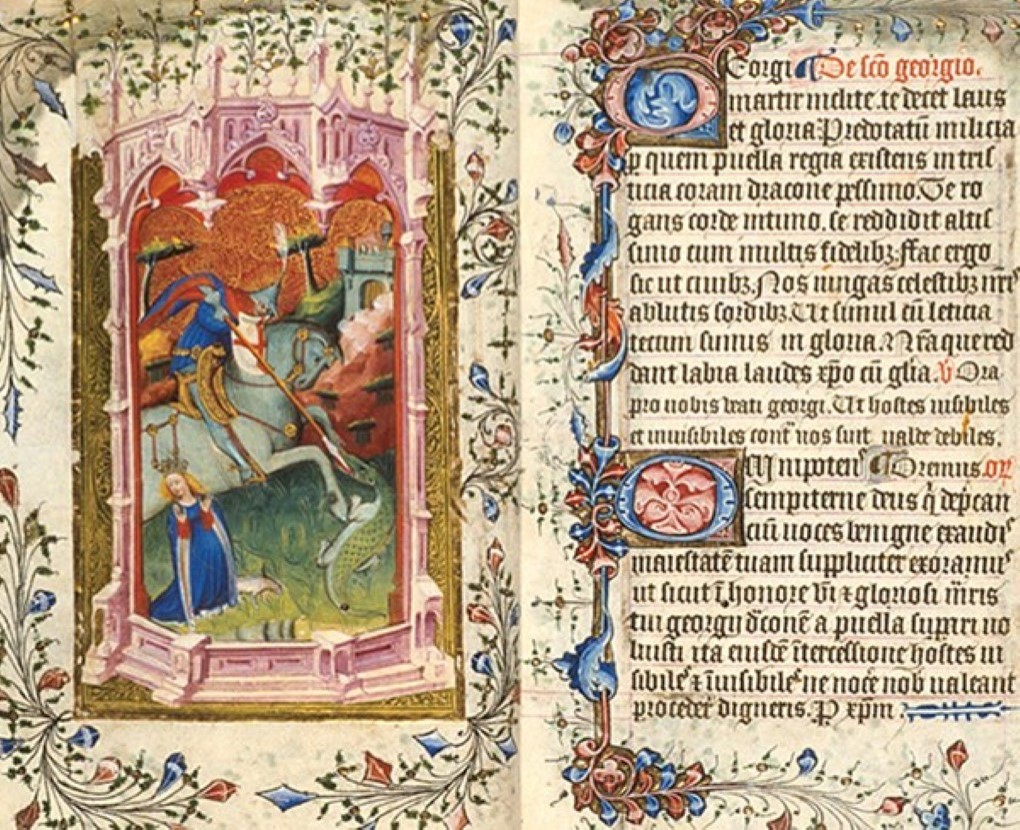 Georgi De sco georgio.
martir inclite. te decet laus
et gloria. Predotatu milicia
p quem puella regia existens in tris
ticia coram dracone pessimo. Te ro
gans corde intimo. se reddidit altis
simo cum multis fidelibz. ffac ergo
sic ut ciuibz. Nos iungas celestibz nris
ablutis sordibz. Ut simul cu leticia
tecum simus in gloria. Nra que red
dant labia laudes xpo cu glia. v Ora
pro nobis beati georgi. Ut hostes uisibiles
et inuisibiles cont nos sint ualde debiles.
Omnipotens Oremus. or
sempiterne deus q depcan
ciu uoces benigne exaudis
maiestate tuam suppliciter exoramus
ut sicut i honore bi & gloriosi mris
tui georgij dcone a puella supari uo
luisti ita eiusde itercessione hostes ui
sibiles & iuisibiles ne noce nob ualeant
procedere digneris. P xpm.